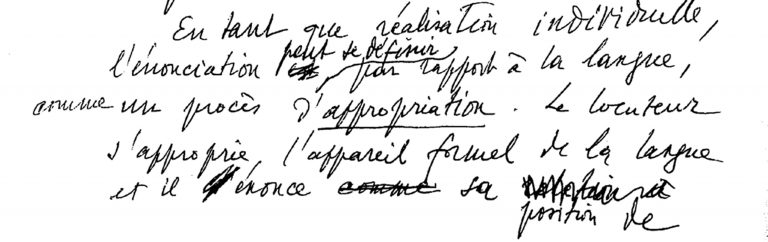 En tant que réalisation individuelle,
peut se définir
l'énonciation est par rapport à la langue,
comme un procès d'appropriation. Le locuteur
s'approprie l'appareil formel de la langue
et il énonce comme sa
position de